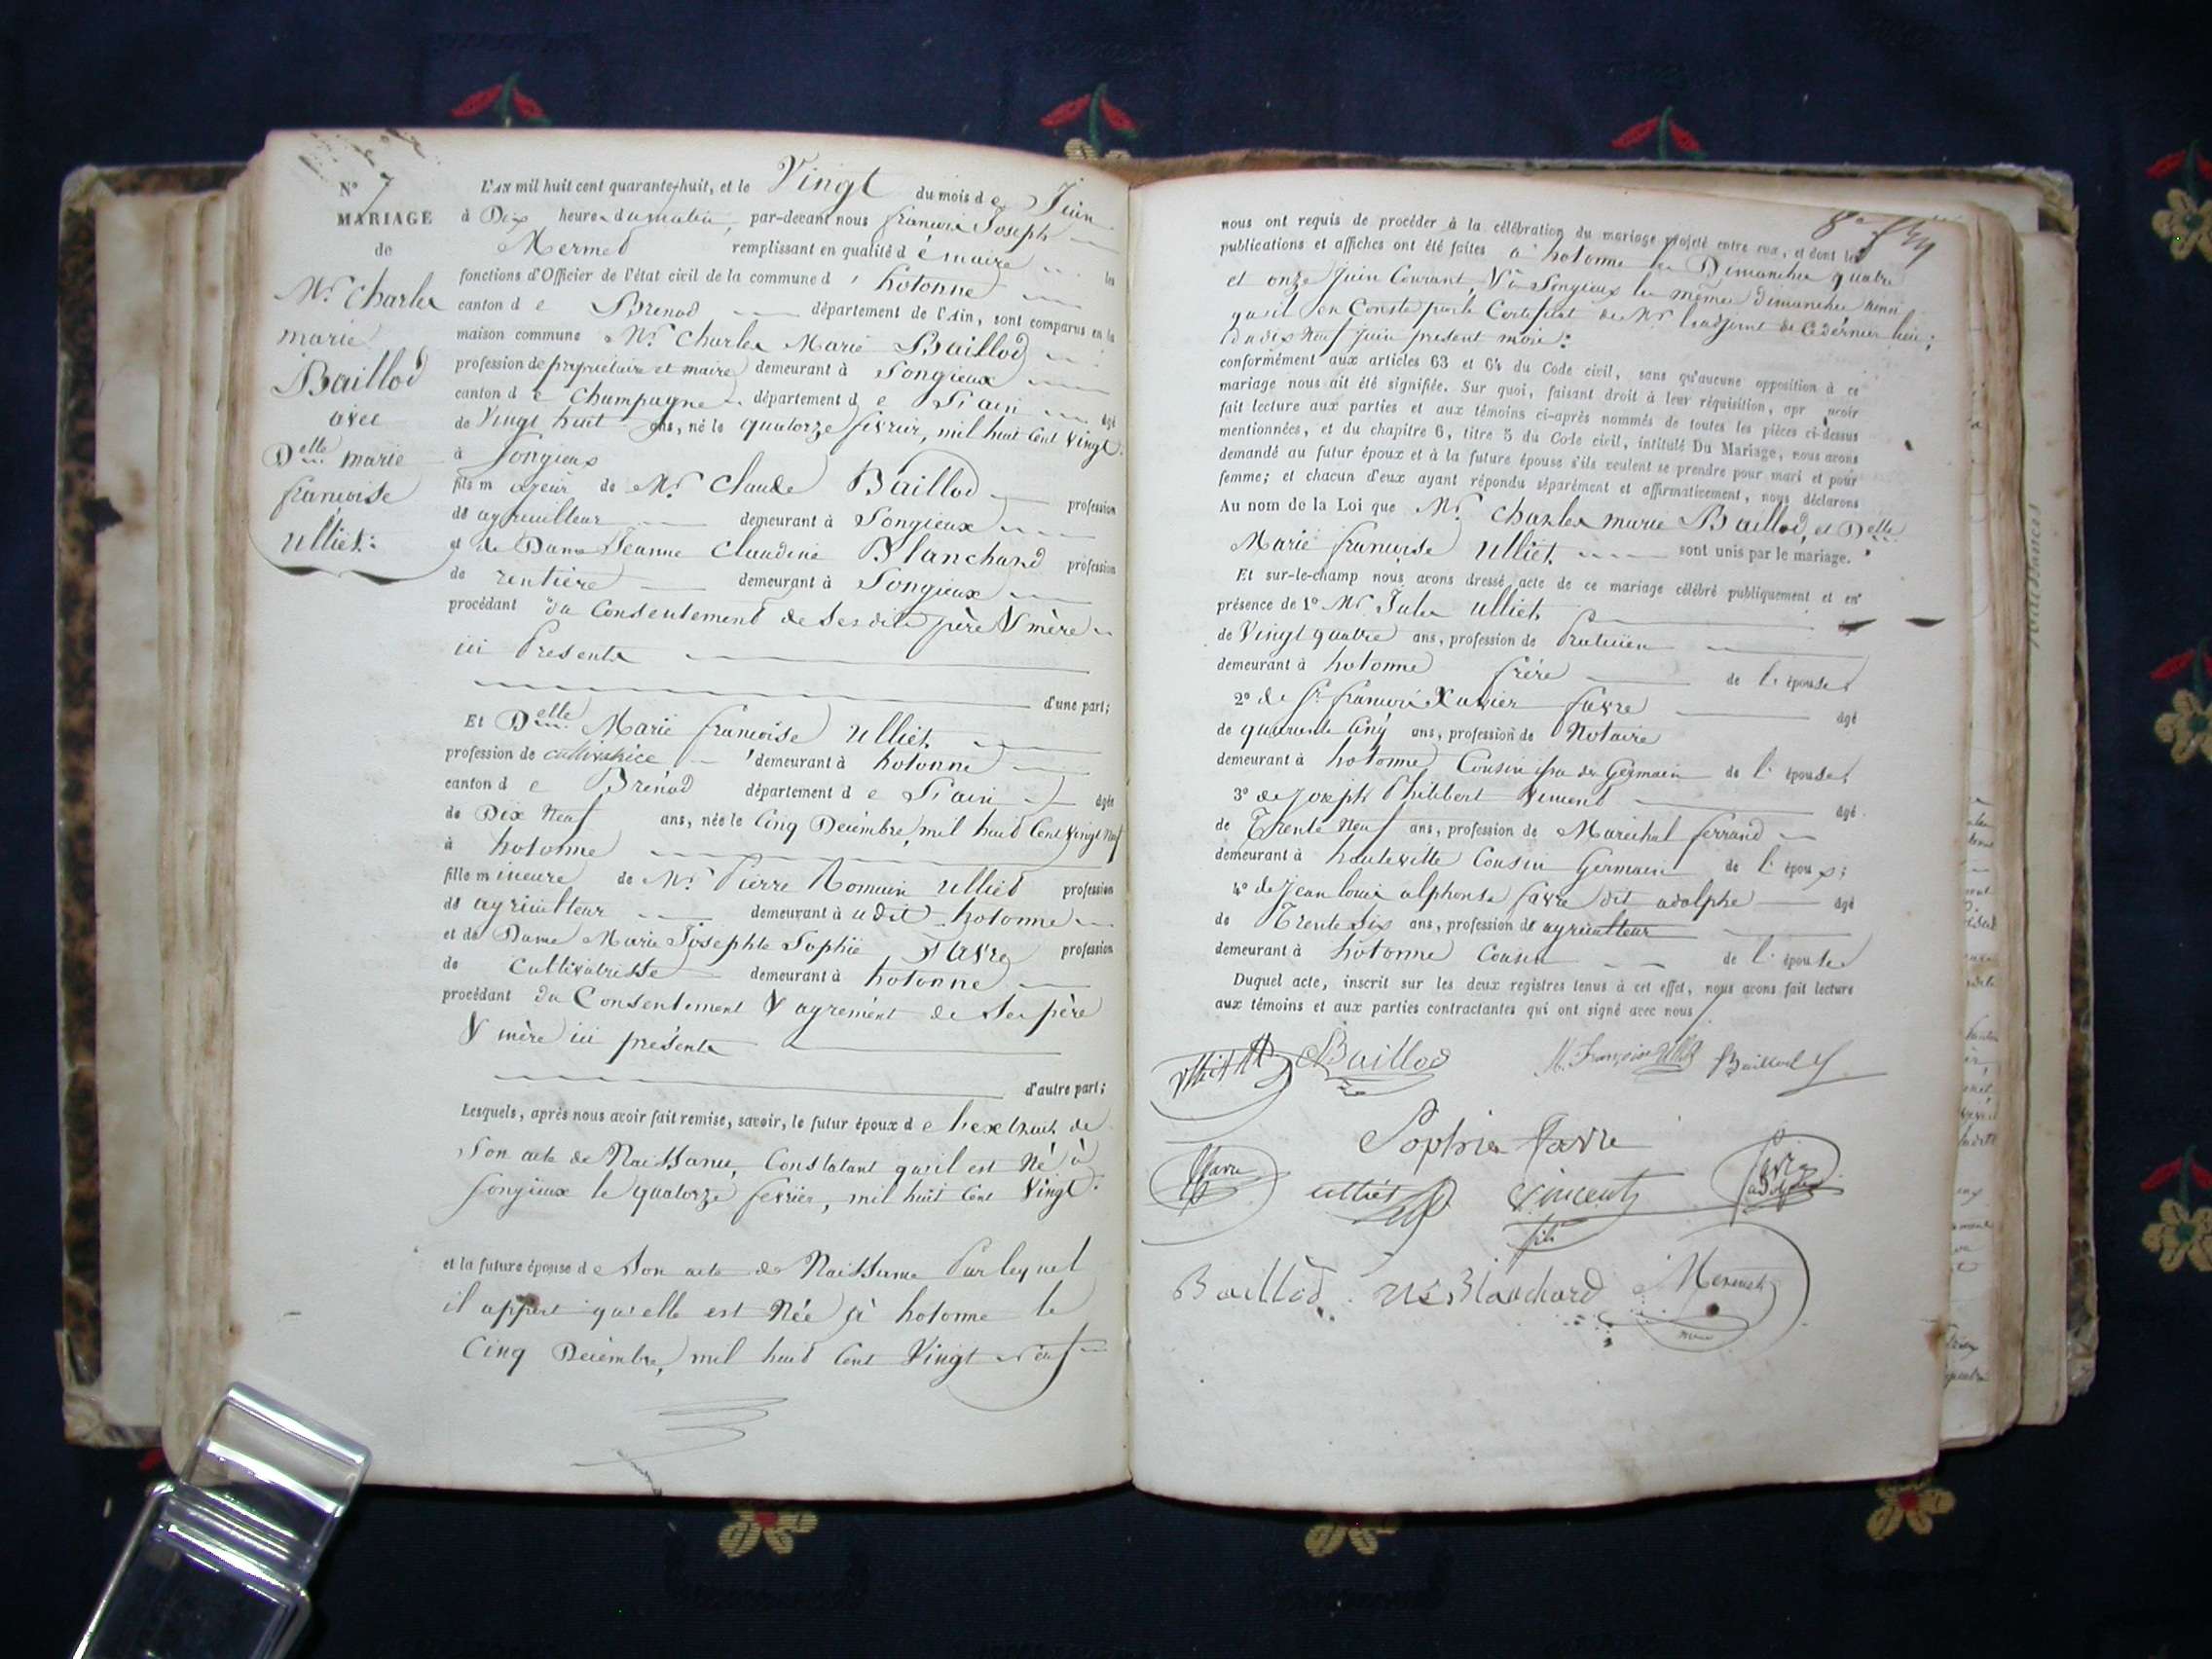 N° 7
MARIAGE
de
Mr. Charles
marie
Baillod
avec
Delle marie
francoise
Ulliet:
L'AN mil huit cent quarante-huit, et le Vingt du mois de Juin
à Dix heures du matin, par-devant nous francois Joseph
Mermet remplissant en qualité de maire les
fonctions d'Officier de l'état civil de la commune d'hotonne
canton de Brénod département de l'Ain, sont comparus en la
maison commune Mr. Charles Marie Baillod
profession de propriétaire et maire demeurant à Songieux
canton de Champagne département de l'ain âgé
de Vingt huit ans, né le quatorze fevrier, mil huit Cent Vingt.
à Songieux
fils majeur de Mr. Claude Baillod profession
de agriculteur demeurant à Songieux
et de Dame Jeanne Claudine Blanchard profession
de rentière demeurant à Songieux
procédant du Consentement de Ses dits père & mère
ici Présents
d'une part;
Et Delle Marie francoise Ulliet
profession de cultivatrice demeurant à hotonne
canton de Brénod département de l'ain âgée
de Dix Neuf ans, née le Cinq Décembre, mil huit Cent Vingt Neuf
à hotonne
fille mineure de Mr. Pierre Romain Ulliet profession
de agriculteur demeurant à udit hotonne
et de Dame Marie Josephte Sophie favre profession
de Cultivatrisse demeurant à hotonne
procédant du Consentement & agrément de Ses père
& mère ici présents
d'autre part;
Lesquels, après nous avoir fait remise, savoir, le futur époux de l'extrait de
Son acte de Naissance, Constatant qu'il est Né à
Songieux le quatorze fevrier, mil huit Cent Vingt.
et la future épouse de Son acte de Naissance Par lequel
il appert qu'elle est Née à hotonne le
Cinq Décembre, mil huit Cent Vingt neuf
nous ont requis de procéder à la célébration du mariage projeté entre eux, et dont les
publications et affiches ont été faites à hotonne les Dimanches quatre
et onze Juin Courant, & à Songieux les mêmes dimanches ainsi
qu'il en Conste par le Certificat de Mr l'adjoint de Ce dernier lieu;
du dix Neuf Juin present mois:
conformément aux articles 63 et 64 du Code civil, sans qu'aucune opposition à ce
mariage nous ait été signifiée. Sur quoi, faisant droit à leur réquisition, apr avoir
fait lecture aux parties et aux témoins ci-après nommés de toutes les pièces ci-dessus
mentionnées, et du chapitre 6, titre 5 du Code civil, intitulé Du Mariage, nous avons
demandé au futur époux et à la future épouse s'ils veulent se prendre pour mari et pour
femme; et chacun d'eux ayant répondu séparément et affirmativement, nous déclarons
Au nom de la Loi que Mr. Charles marie Baillod, et Delle
Marie francoise Ulliet sont unis par le mariage.
Et sur-le-champ nous avons dressé acte de ce mariage célébré publiquement et en
présence de 1° Mr Jules Ulliet
de Vingt quatre ans, profession de Praticien
demeurant à hotonne frère de l'épouse
2° de Sr francois Xavier favre âgé
de quarante Cinq ans, profession de Notaire
demeurant à hotonne Cousin issu de Germain de l'épouse
3° de Joseph Philibert Vincent âgé
de Trente Neuf ans, profession de Maréchal ferrand
demeurant à hauteville Cousin Germain de l'époux;
4° de Jean louis alphonse favre dit adolphe âgé
de Trente Six ans, profession de agriculteur
demeurant à hotonne Cousin de l'épouse
Duquel acte, inscrit sur les deux registres tenus à cet effet, nous avons fait lecture
aux témoins et aux parties contractantes qui ont signé avec nous
Baillod M. Françoise Ulliet Baillod
Sophie favre
favre ulliet Vincent favre adolphe
fils
Baillod Blanchard Mermet
maire
naissances